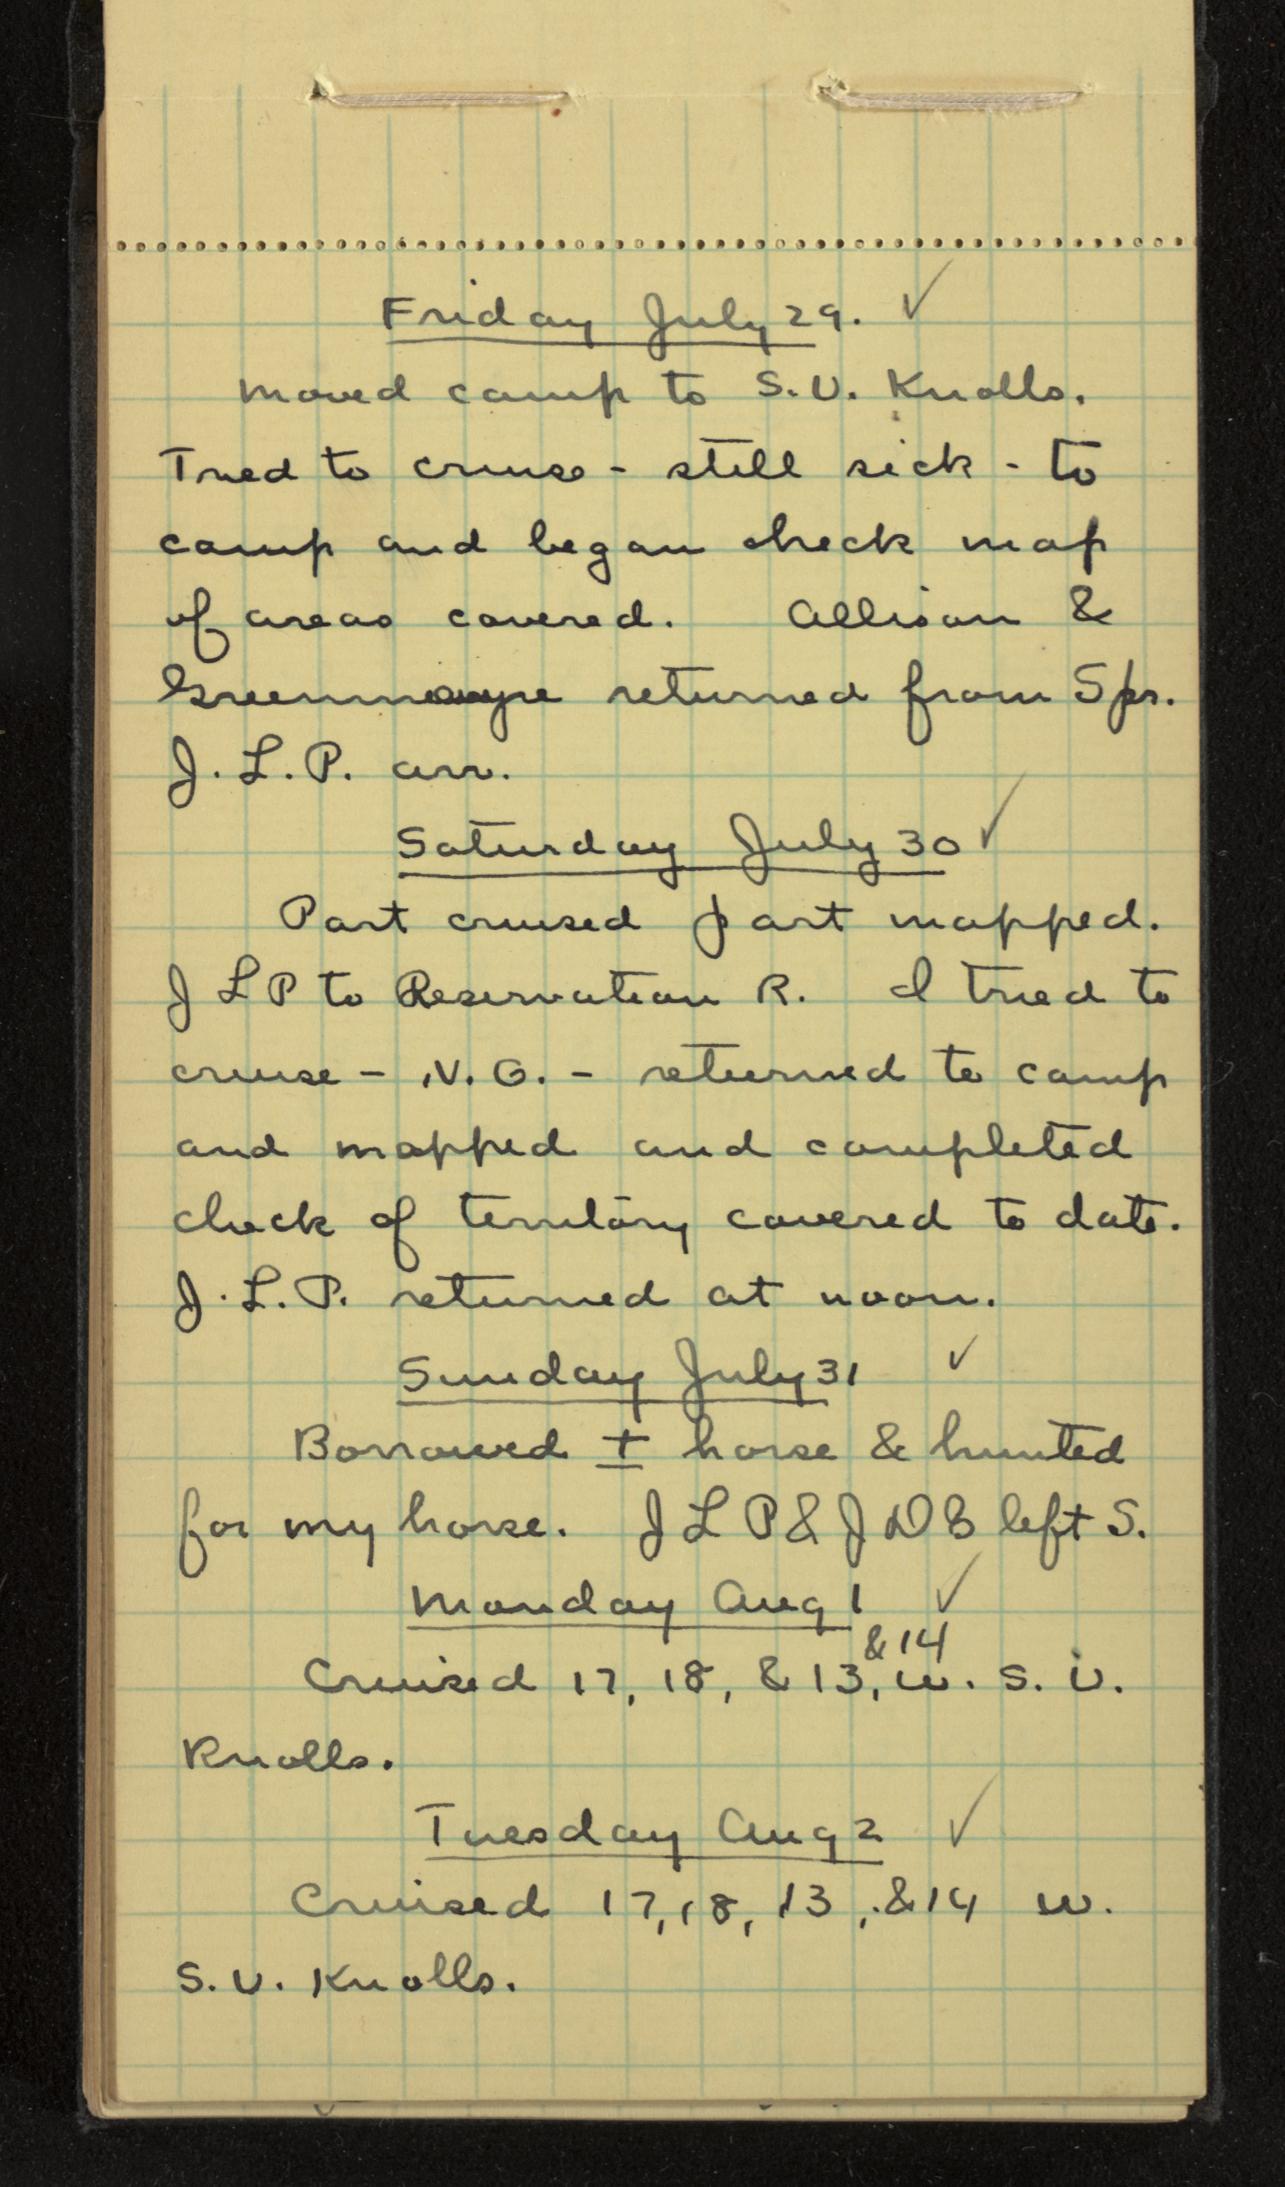 Friday July 29. ✓
Moved camp to S.U. Knolls.
Tried to cruise - still sick - to
camp and began check map
of areas covered. Allison &
returned from Spr.
J.L.P. arr.
Saturday July 30 ✓
Part cruised part mapped.
J L P to Reservation R. I tried to
cruise - N.G. - returned to camp
and mapped and completed
check of territory covered to date.
J.L.P. returned at noon.
Sunday July 31 ✓
Borrowed I horse & hunted
for my horse. J L P & J D B left S.
Monday Aug 1 ✓
& 14
Cruised 17, 18, & 13, W. S. U.
Knolls.
Tuesday Aug 2 ✓
Cruised 17, 18, 13, & 14 W.
S.U. Knolls.